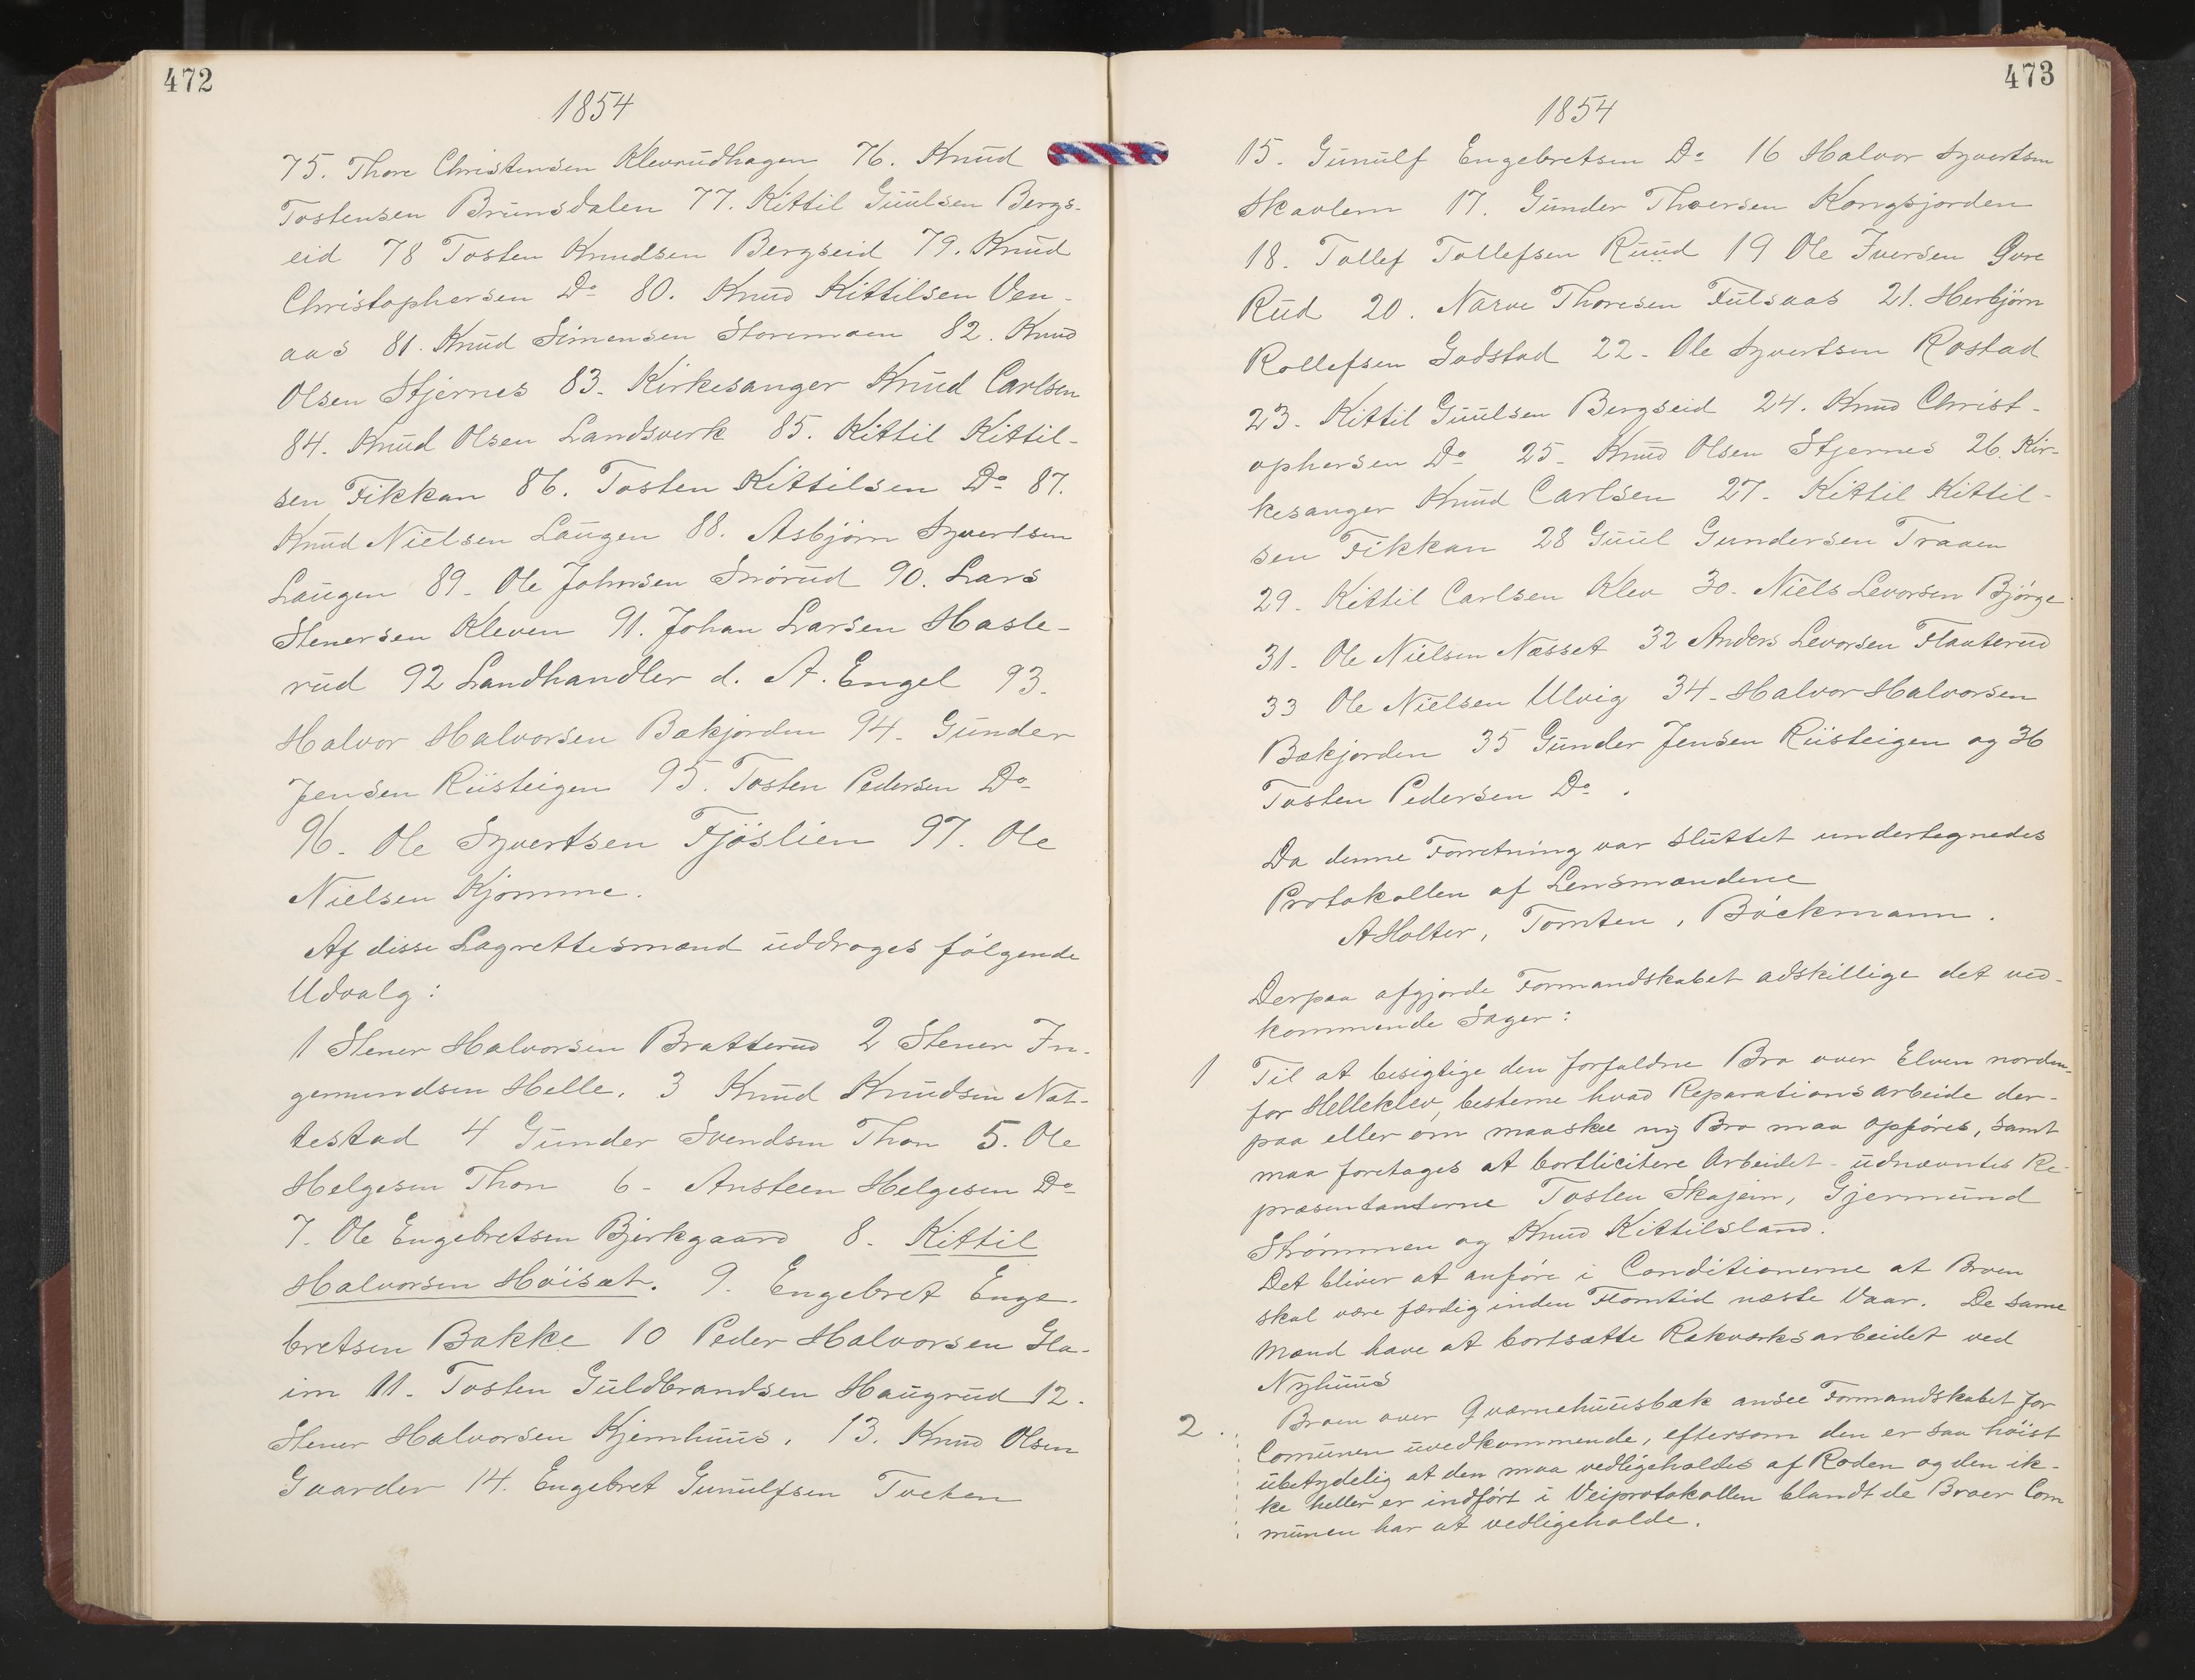 472
1854
75. Thore Christensen Klevrudhagen 76. Knud
Tostensen Brunsdalen 77. Kittil Guulsen Bergs-
eid 78 Tosten Knudsen Bergseid 79. Knud
Christophersen Do 80. Knud Kittilsen Ven-
aas 81. Knud Simensen Storemoen 82. Knud
Olsen Stjernes 83. Kirkesanger Knud Carlsen
84. Knud Olsen Landsverk 85. Kittil Kittil-
sen Fikkan 86. Tosten Kittilsen Do 87.
Knud Nielsen Laugen 88. Asbjørn Syvertsen
Laugen 89. Ole Johnsen Snörud 90. Lars
Stenersen Kleven 91. Johan Larsen Hasle-
rud 92 Landhandler d. A. Engel 93.
Halvor Halvorsen Bækjorden 94. Gunder
Jensen Riisteigen 95. Tosten Pedersen Do
96. Ole Syvertsen Fjöslien 97. Ole
Nielsen Kjomme.
Af disse Lagrettesmænd uddroges fölgende
Udvalg:
1 Stener Halvorsen Bratterud 2 Stener In-
gemundsen Helle. 3 Knud Knudsen Nat-
testad 4 Gunder Svendsen Thon 5. Ole
Helgesen Thon 6- Ansteen Helgesen Do
7. Ole Engebretsen Bjerkgaard 8. Kittil
Halvorsen Höisæt. 9. Engebret Enge-
bretsen Bakke 10 Peder Halvorsen Gla-
im 11. Tosten Guldbrandsen Haugrud 12.
Stener Halvorsen Kjemhuus. 13. Knud Olsen
Gaarder 14. Engebret Gunulfsen Tveten
473
1854
15. Gunulf Engebretsen Do 16 Halvor Syvertsen
Skavlem 17. Gunder Thoersen Kongsjorden
18. Tollef Tollefsen Ruud 19 Ole Iversen Øvre
Rud 20. Narve Thoresen Fulsaas 21. Herbjörn
Rollefsen Godstad 22- Ole Syvertsen Rostad
23. Kittil Guulsen Bergseid 24. Knud Christ-
ophersen Do 25- Knud Olsen Stjernes 26. Kir-
kesanger Knud Carlsen 27- Kittil Kittil-
sen Fikkan 28 Guul Gundersen Traaen
29- Kittil Carlsen Klev 30- Niels Levorsen Björge
31- Ole Nielsen Næsset 32 Anders Levorsen Flaaterud
33 Ole Nielsen Ulvig 34- Halvor Halvorsen
Bækjorden 35 Gunder Jensen Riisteigen og 36
Tosten Pedersen Do.
Da denne Forretning var sluttet undertegnedes
Protokollen af Lensmændene
A Holter, Tomten, Böckmann.
Derpaa afgjorde Formandskabet adskillige det ved-
kommende Sager:
1 Til at besigtige den forfaldne Bro over Elven norden-
for Helleklev, bestemme hvad Reparationsarbeide der-
paa eller om maaskee ny Bro maa opföres, samt
maa foretages at bortlicitere Arbeidet- udnævntes Re-
præsentanterne Tosten Skajem, Gjermund
Strömmen og Knud Kittilsland.
Det bliver at anföre i Conditionerne at Broen
skal være færdig inden Flomtid næste Vaar. De same
Mænd have at bortsætte Rækværksarbeidet ved
Nyhuus
2. Broen over Qværnehuusbæk ansee Formandskabet for
Comunen uvedkommende, eftersom den er saa höist
ubetydelig at den maa vedligeholdes af Roden og den ik-
ke heller er indfört i Veiprotokollen blandt de Broer Com
munen har at vedligeholde.